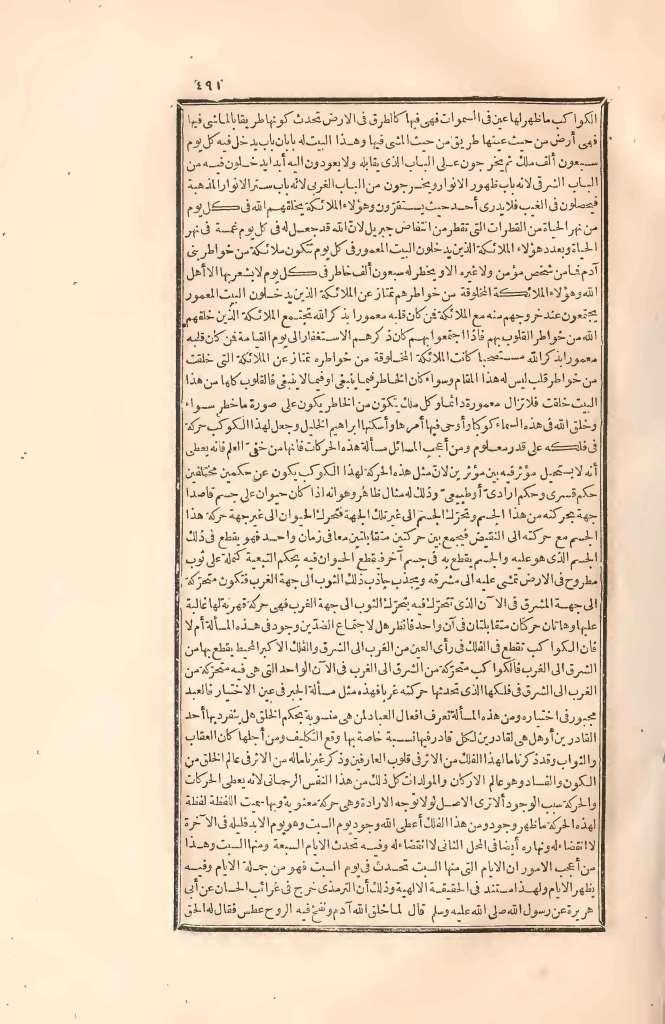 ٤٩١
الكواكب ما ظهر لها عين فى السموات فهى فيها كالطرق فى الارض تحدث كونها طريقا بالماشى فيها
فهى أرض من حيث عينها طريق من حيث المشى فيها وهذا البيت له بابان باب يدخل فيه كل يوم
سبعون ألف ملك ثم يخرجون على الباب الذى يقابله ولا يعودون اليه أبدا يدخلون فيه من
الباب الشرقى لانه باب ظهور الانوار ويخرجون من الباب الغربى لانه باب ستر الانوار المذهبة
فيحصلون فى الغيب فلا يدرى أحد حيث يستقرّون وهؤلاء الملائكة يخلقهم الله فى كل يوم
من نهر الحياة من القطرات التى تقطر من انتفاض جبريل لانّ الله قد جعل له فى كل يوم غمسة فى نهر
الحياة وبعدد هؤلاء الملائكة الذين يدخلون البيت المعمور فى كل يوم تتكون ملائكة من خواطر بنى
آدم فما من شخص مؤمن ولا غيره الا ويخطر له سبعون ألف خاطر فى كل يوم لا يشعر بها الا أهل
الله وهؤلاء الملائكة المخلوقة من خواطرهم تمتاز عن الملائكة الذين يدخلون البيت المعمور
يجتمعون عند خروجهم منه مع الملائكة فمن كان قلبه معمورا بذكر الله تجتمع الملائكة الذين خلقهم
الله من خواطر القلوب بهم فاذا اجتمعوا بهم كان ذكرهم الاستغفار الى يوم القيامة فمن كان قلبه
معمورا بذكر الله مستصحبا كانت الملائكة المخلوقة من خواطره تمتاز عن الملائكة التى خلقت
من خواطر قلب ليس له هذا المقام وسواء كان الخاطر فيما ينبغى او فيما لا ينبغى فالقلوب كلها من هذا
البيت خلقت فلا تزال معمورة دائما وكل ملك يتكوّن من الخاطر يكون على صورة ما خطر سواء
وخلق الله فى هذه السماء كوكبا وأوحى فيها أمرها وأسكنها ابراهيم الخليل وجعل لهذا الكوكب حركة
فى فلكه على قدر معلوم ومن أعجب المسائل مسألة هذه الحركات فانها من خفىّ العلم فانه يعطى
أنه لا يستحيل مؤثر فيه بين مؤثرين لانّ مثل هذه الحركة لهذا الكوكب يكون عن حكمين مختلفين
حكم قسرى وحكم ارادىّ أو طبيعىّ وذلك له مثال ظاهر وهو انه اذا كان حيوان على جسم قاصدا
جهة بحركته من هذا الجسم وتحرّك الجسم الى غير تلك الجهة فتحرك الحيوان الى غير جهة حركة هذا
الجسم مع حركته الى النقيض فيجمع بين حركتين متقابلتين معا فى زمان واحد فهو يقطع فى ذلك
الجسم الذى هو عليه والجسم يقطع به فى جسم آخر فيقطع الحيوان فيه بحكم التبعية كنملة على ثوب
مطروح فى الارض تمشى عليه الى مشرقه ويجذب جاذب ذلك الثوب الى جهة الغرب فتكون متحرّكة
الى جهة المشرق فى الآن الذى تتحرّك فيه بتحرّك الثوب الى جهة الغرب فهى حركة قهرية لها غالبة
عليها وهاتان حركتان متقابلتان فى آن واحد فانظر هل لاجتماع الضدّين وجود فى هذه المسألة أم لا
فانّ الكواكب تقطع فى الفلك فى رأى العين من الغرب الى الشرق والفلك الاكبر المحيط يقطع بها من
الشرق الى الغرب فالكواكب متحرّكة من الشرق الى الغرب فى الآن الواحد التى هى فيه متحرّكة من
الغرب الى الشرق فى فلكها الذى تحدثها حركته غربا فهذه مثل مسألة الجبر فى عين الاختيار فالعبد
مجبور فى اختياره ومن هذه المسألة تعرف افعال العباد لمن هى منسوبة بحكم الخلق هل ينفرد بها أحد
القادرين أو هل هى لقادرين لكل قادر فيها نسبة خاصة بها وقع التكليف ومن أجلها كان العقاب
والثواب وقد ذكرنا ما لهذا الفلك من الاثر فى قلوب العارفين وذكر غيرنا ماله من الاثر فى عالم الخلق من
الكون والفساد وهو عالم الاركان والمولدات كل ذلك من هذا النفس الرحمانى لانه يعطى الحركات
والحركة سبب الوجود ألا ترى الاصل لولا توجه الارادة وهى حركة معنوية وبها سميت اللفظة لفظة
لهذه الحركة ما ظهر وجود ومن هذا الفلك أعطى الله وجود يوم السبت وهو يوم الابد فليله فى الآخرة
لا انقضاء له ونهاره أيضا فى المحل الثانى لا انقضاء له وفيه تحدث الايام السبعة ومنها السبت وهذا
من أعجب الامور ان الايام التى منها السبت تحدث فى يوم السبت فهو من جملة الايام وفيه
يظهر الايام ولهذا مستند فى الحقيقة الالهية وذلك أن الترمذى خرج فى غرائب الحسان عن أبى
هريرة عن رسول الله صلى الله عليه وسلم قال لما خلق الله آدم ونفخ فيه الروح عطس فقال له الحق